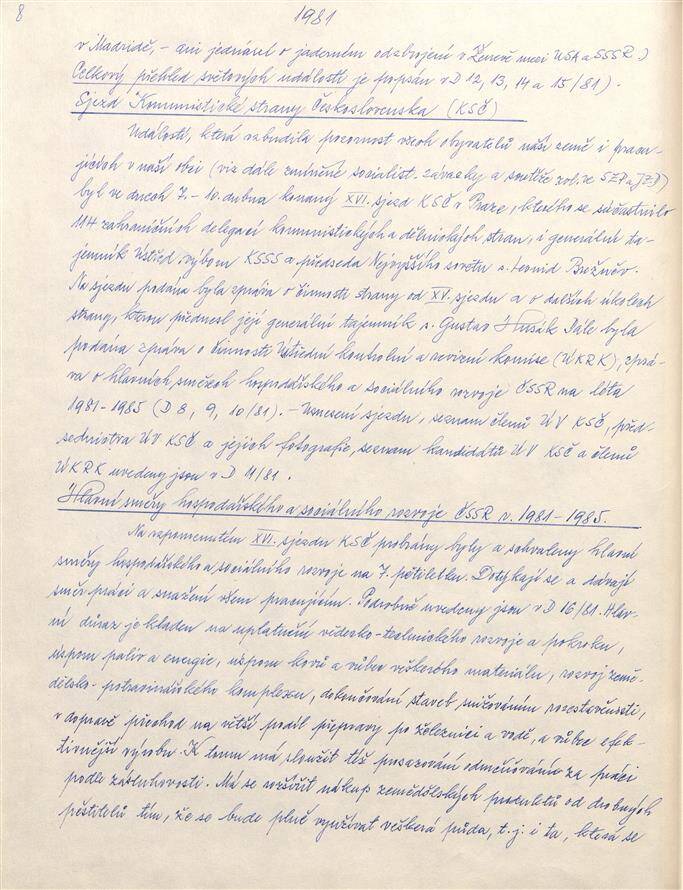 8
1981
v Madridě, - ani jednání o jaderném odzbrojení v Ženevě mezi USA a SSSR.)
Celkový přehled světových událostí je popsán v D 12, 13, 14 a 15/81).
Sjezd Komunistické strany Československa (KSČ)
Událostí, která vzbudila pozornost všech obyvatelů naší země i pracu-
jících v naší obci (viz dále zmíněné socialist. závazky a soutěže zvl. ve SZP a JZD)
byl ve dnech 7. - 10. dubna konaný XVI. sjezd KSČ v Praze, kterého se súčastnilo
114 zahraničních delegací komunistických a dělnických stran, i generální ta-
jemník Ústřed. výboru KSSS a předseda Nejvyššího sovětu s. Leonid Brežněv.
Na sjezdu podána byla zpráva o činnosti strany od XV. sjezdu a o dalších úkolech
strany, kterou přednesl její generální tajemník s. Gustav Husák. Dále byla
podána zpráva o činnosti Ústřední kontrolní a revizní komise (ÚKRK), zprá-
va o hlavních směrech hospodářského a sociálního rozvoje ČSSR na léta
1981-1985 (D 8, 9, 10/81). - Usnesení sjezdu, seznam členů ÚV KSČ, před-
sednictva ÚV KSČ a jejich fotografie, seznam kandidátů ÚV KSČ a členů
ÚKRK uvedeny jsou v D 11/81.
Hlavní směry hospodářského a sociálního rozvoje ČSSR v r. 1981-1985.
Na vzpomenutém XVI. sjezdu KSČ probrány byly a schváleny hlavní
směry hospodářského a sociálního rozvoje na 7. pětiletku. Dotýkají se a dávají
směr práci a snažení všem pracujícím. Podrobně uvedeny jsou v D 16/81. Hlav-
ní důraz je kladen na uplatnění vědecko-technického rozvoje a pokroku,
úspor paliv a energie, úspor kovů a vůbec veškerého materiálu, rozvoj země-
dělsko-potravinářského komplexu, dokončování staveb snižováním rozestavěnosti,
v dopravě přechod na větší podíl přepravy po železnici a vodě, a vůbec efek-
tivnější výrobu. K tomu má sloužit též prosazování odměňování za práci
podle zásluhovosti. Má se rozšířit nákup zemědělských produktů od drobných
pěstitelů tím, že se bude plně využívat veškerá půda, t.j. i ta, která se